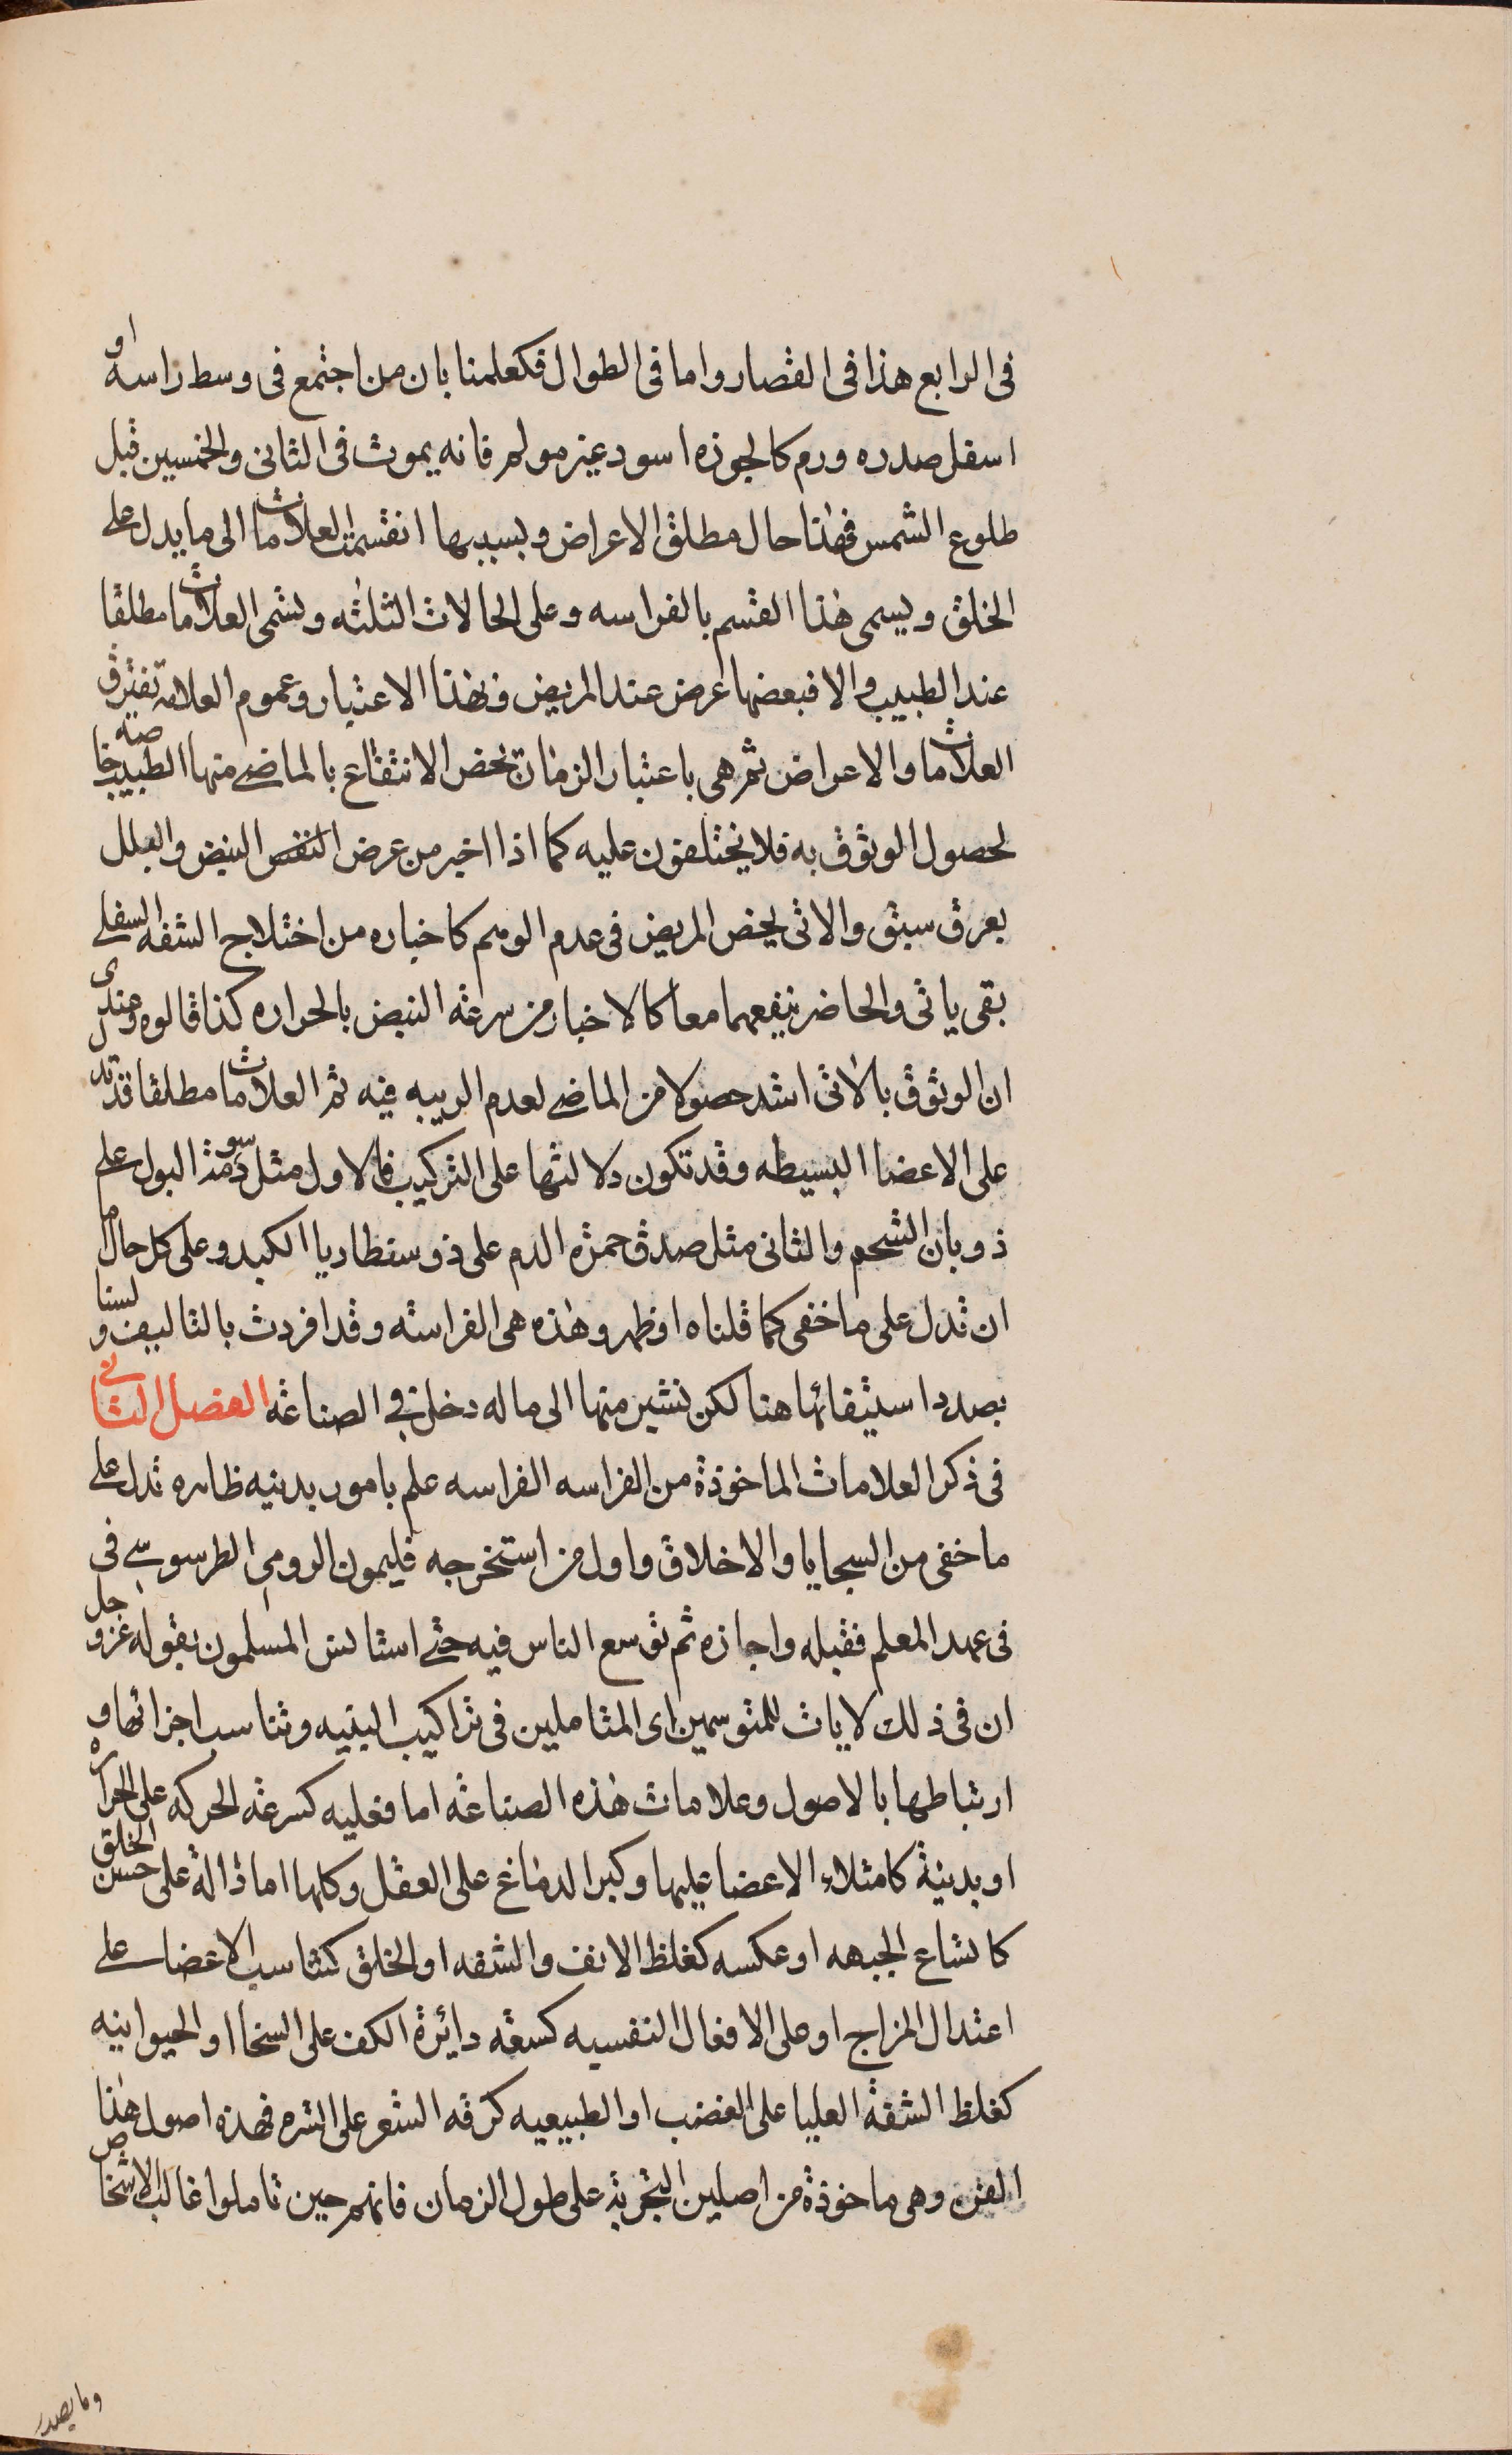 فى الرابع هذا فى القصار واما فى الطوال فكعلمنا بان من اجتمع فى وسط راسه او
اسفل صدره ورم كالجوزه اسود غير مولم فانه يموت فى الثانى والخمسين قبل
طلوع الشمس فهذا حال مطلق الاعراض وبسببها انقسمت العلامات الى ما يدل على
الخلق ويسمى هذا القسم بالفراسه وعلى الحالات الثلثه وتسمى العلامات مطلقا
عند الطبيب والا فبعضها عرض عند المريض فبهذا الاعتبار وعموم العلامه تفترق
العلامات والاعراض ثم هى باعتبار الزمان تخص الانتفاع بالماضى منها الطبيب خاصه
لحصول الوثوق به فلا يختلفون عليه كما اذا اخبر من عرض النقص النبض والبلل
بعرق سبق والاتى يخص المريض فى عدم الوهم كاخباره من اختلاج الشفه السفلى
بقى ياتى والحاضر ينفعهما معا كالاخبار من سرعة النبض بالحراره كذا قالوه وعندى
ان الوثوق بالاتى اشد حصولا من الماضى لعدم الريبه فيه ثم العلامات مطلقا قد تدل
على الاعضا البسيطه وقد تكون دلالتها على التركيب فالاول مثل دسومة البول على
ذوبان الشحم والثانى مثل صدق حمرة الدم على ذوسنطاريا الكبد وعلى كل حال اما
ان تدل على ما خفى كما قلناه او ظهر وهذه هى الفراسة وقد افردت بالتاليف ولسنا
بصدد استيفائها هنا لكن نشير منها الى ما له دخل فى الصناعة الفصل الثانى
فى ذكر العلامات الماخوذة من الفراسه الفراسه علم بامور بدنيه ظاهره تدل على
ما خفى من السجايا والاخلاق واول من استخرجه فليمون الرومى الطرسوسى فى
فى عهد المعلم فقبله واجازه ثم توسع الناس فيه حتى استانس المسلمون بقوله عز وجل
ان فى ذلك لايات للمتوسمين اى المتاملين فى تراكيب البنيه وتناسب اجزائها و
ارتباطها بالاصول وعلامات هذه الصناعة اما فعليه كسرعة الحركه على الحراره
او بدنية كامتلاء الاعضا عليها وكبر الدماغ على العقل وكلها اما دالة على حسن الخلق
كاتساع الجبهه او عكسه كغلظ الانف والشفه او الخلق كتناسب الاعضا على
اعتدال المزاج او على الافعال النفسيه كسعة دايرة الكف على السخا او الحيوانيه
كغلظ الشفة العليا على الغضب او الطبيعيه كرقه الشعر على الشره فهذه اصول هذا
الفن وهى ماخوذة من اصلين التجربة على طول الزمان فانهم حين تاملوا غالب الاشخاص
وما يصدر